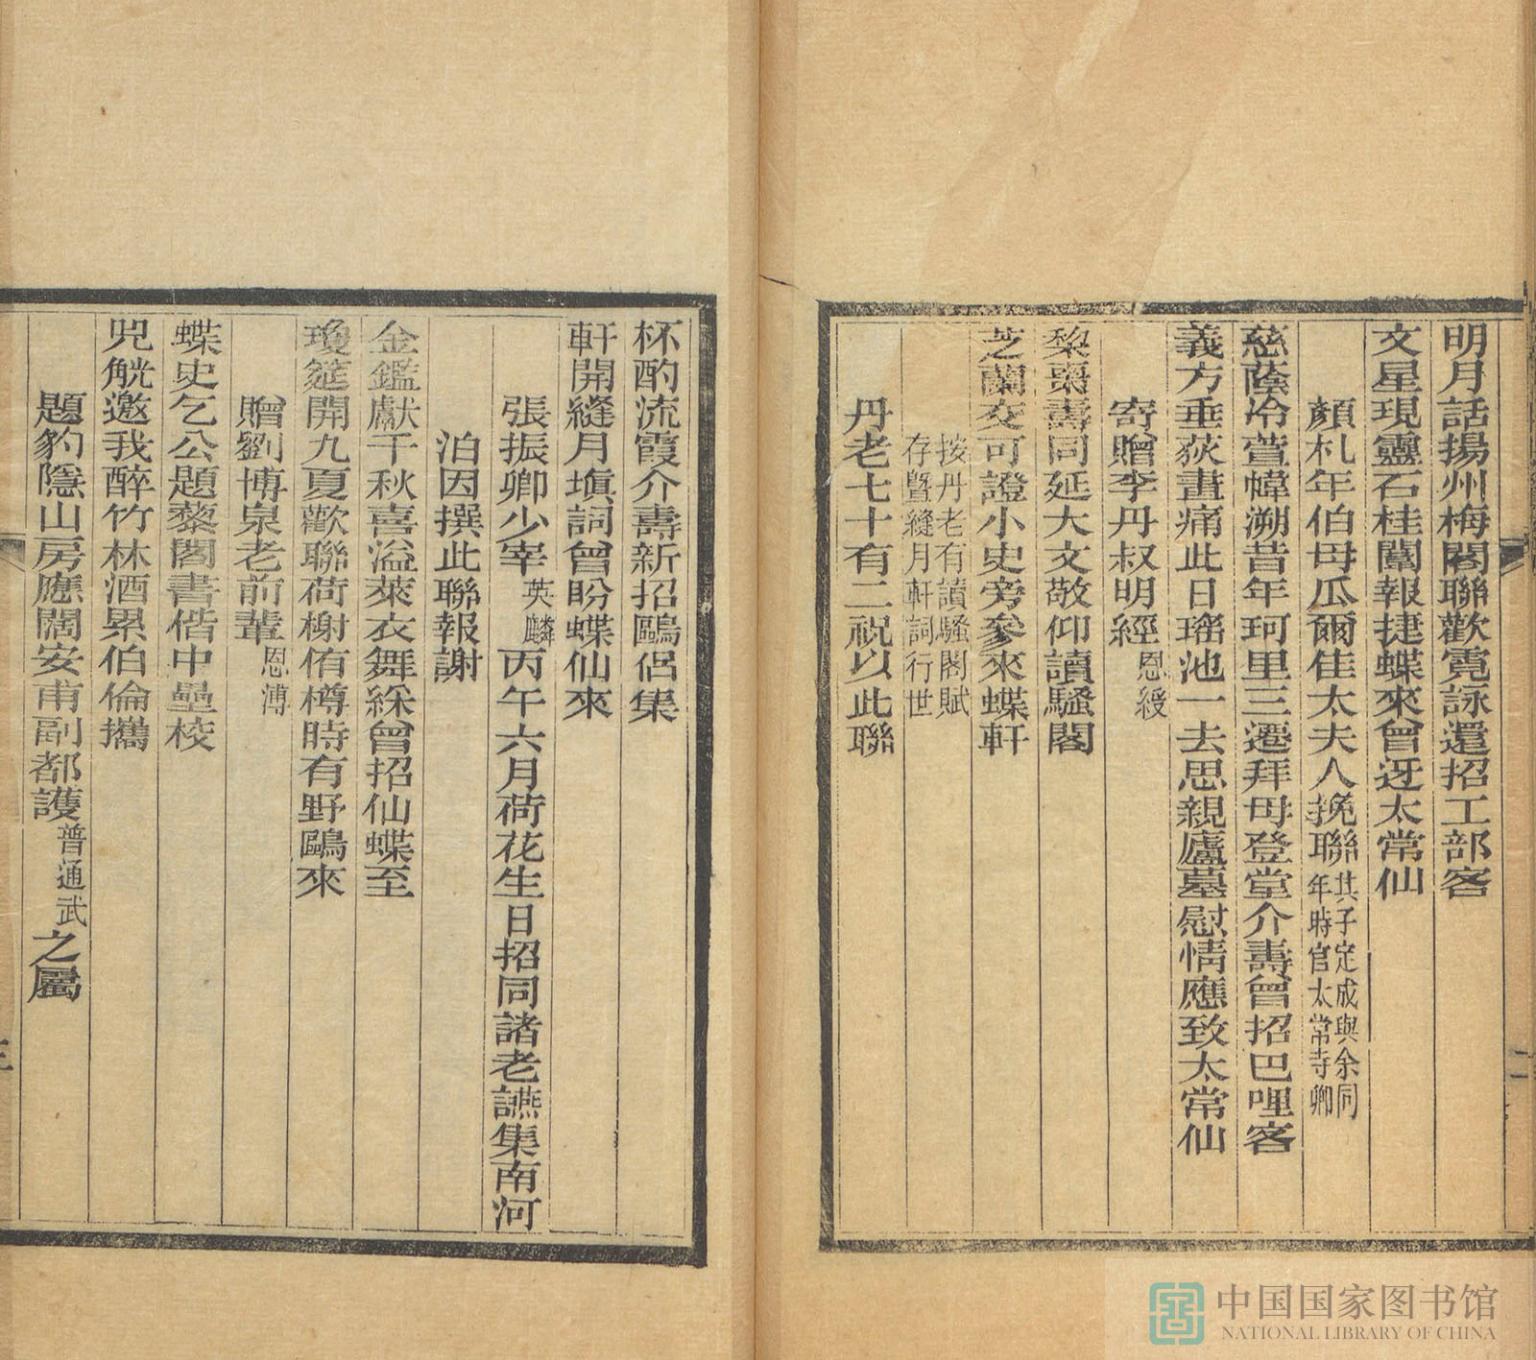 明月話揚州梅閣聯歡霓詠還招工部客
文星現靈石桂闈報捷蝶來曾迓太常仙
顏札年伯母瓜爾佳太夫人挽聯其子定成與余同年時官太常寺卿
慈蔭冷萱幃溯昔年珂里三遷拜母登堂介壽曾招巴哩客
義方垂荻畫痛此日瑤池一去思親廬墓慰情應致太常仙
寄贈李丹叔明經恩綬
梨棗壽同延大文敬仰讀騷閣
芝蘭交可證小史旁參來蝶軒
按丹老有讀騷閣賦存曁縫月軒詞行世
丹老七十有二祝以此聯
杯酌流霞介壽新招鷗侶集
軒開縫月塡詞曾盼蝶仙來
張振卿少宰英麟丙午六月荷花生日招同諸老讌集南河
泊因撰此聯報謝
金鑑獻千秋喜溢萊衣舞綵曾招仙蝶至
瓊筵開九夏歡聯荷榭侑樽時有野鷗來
贈劉博泉老前輩恩溥
蝶史乞公題藜閣書偕中壘校
兕觥邀我醉竹林酒累伯倫攜
題豹隱山房應闊安甫副都護普通武之屬
二
三
中国国家图书馆
NATIONAL LIBRARY OF CHINA